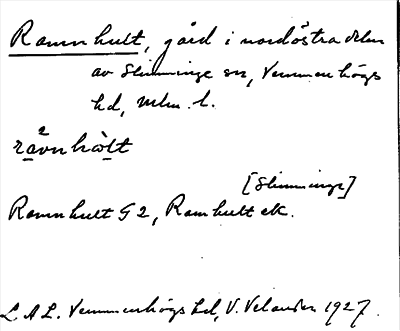 Ramnhult, gård i nordöstra delen
av Slimminge sn, Vemmenhögs
hd, Mlm. l.
2
ravnhàlt
[Slimminge]
Ramnhult G 2, Ramhult ek.
L.A.L. Vemmenhögs hd, V. Velander 1927.